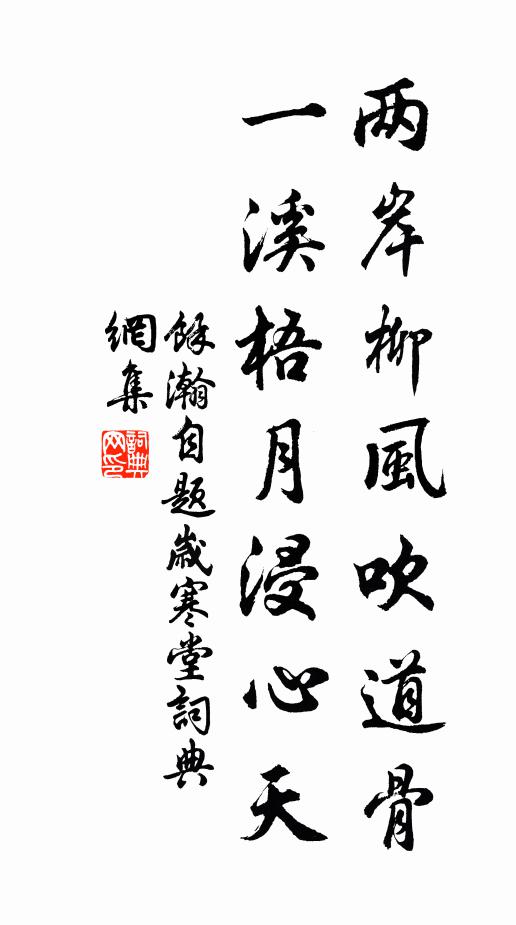 两岸柳風吹道骨
一溪梧月浸心天
餘瀚自题歲寒堂詞典
網集
詞典
网印